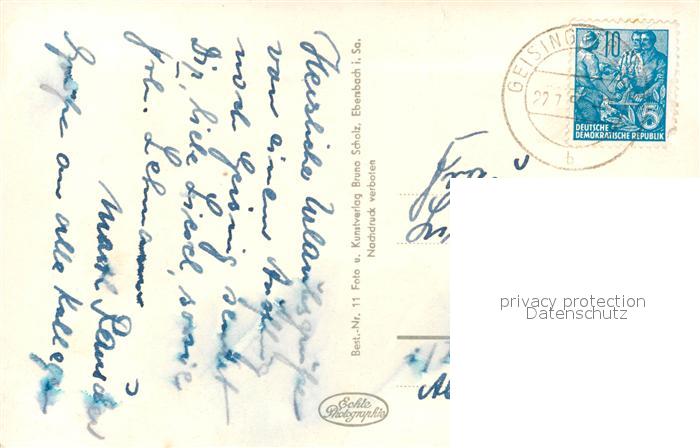 Herzliche Urlaubsgrüße
von einem Ausflug
nach Geising sendet
Dir, liebe Liesel, sowie
Frl. Lehmann
Marth
Grüße an alle Kolleg
Best.-Nr. 11 Foto u. Kunstverlag Bruno Scholz, Ebersbach i. Sa.
Nachdruck verboten
Echte
Photographie
GEISING
22.7.5
b
10
5
DEUTSCHE
DEMOKRATISCHE REPUBLIK
Frau
privacy protection
Datenschutz